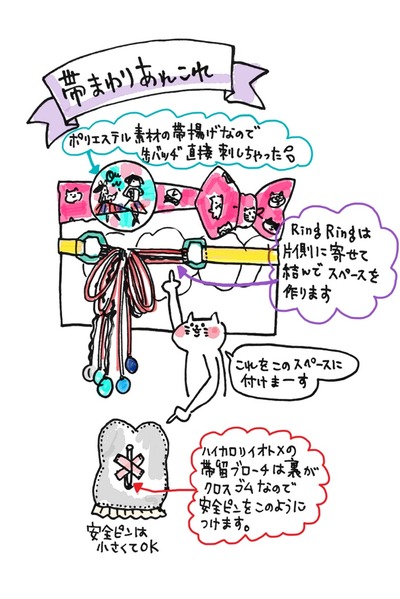 帯まわりあれこれ
ポリエステル素材の帯揚げなので
缶バッヂ直接刺しちゃった
Ring Ringは
片側に寄せて
結んでスペースを
作ります
これをこのスペースに
付けまーす
ハイカロリイオトメの
帯留ブローチは裏が
クロスゴムなので
安全ピンをこのように
つけます。
安全ピンは
小さくてOK